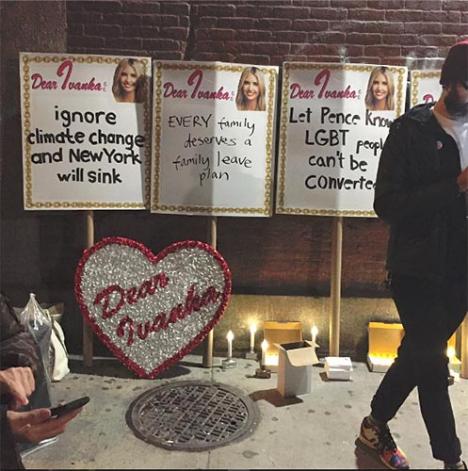 Dear Ivanka
ignore
climate change
and New York
will sink
Dear Ivanka
EVERY family
deserves a
family leave
plan
Dear Ivanka
Let Pence Know
LGBT people
can't be
converted
Dear
Dear
Ivanka